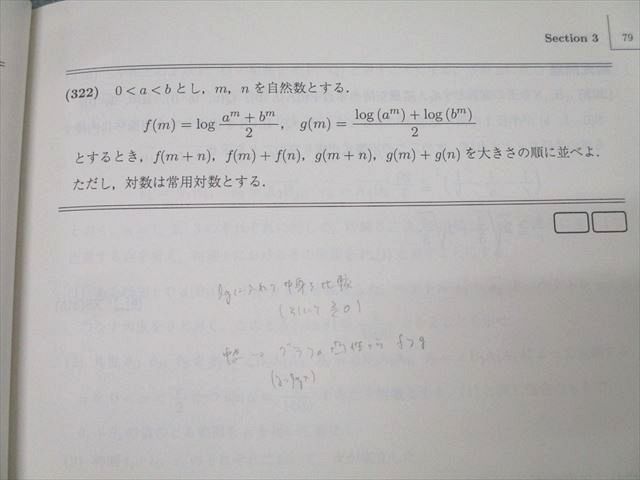 Section 3
79
(322) 0 < a < b とし，m，n を自然数とする．
f(m) = log (a^m + b^m)/2， g(m) = (log (a^m) + log (b^m))/2
とするとき，f(m+n)，f(m)+f(n)，g(m+n)，g(m)+g(n) を大きさの順に並べよ．
ただし，対数は常用対数とする．
logに入れて中身を比較